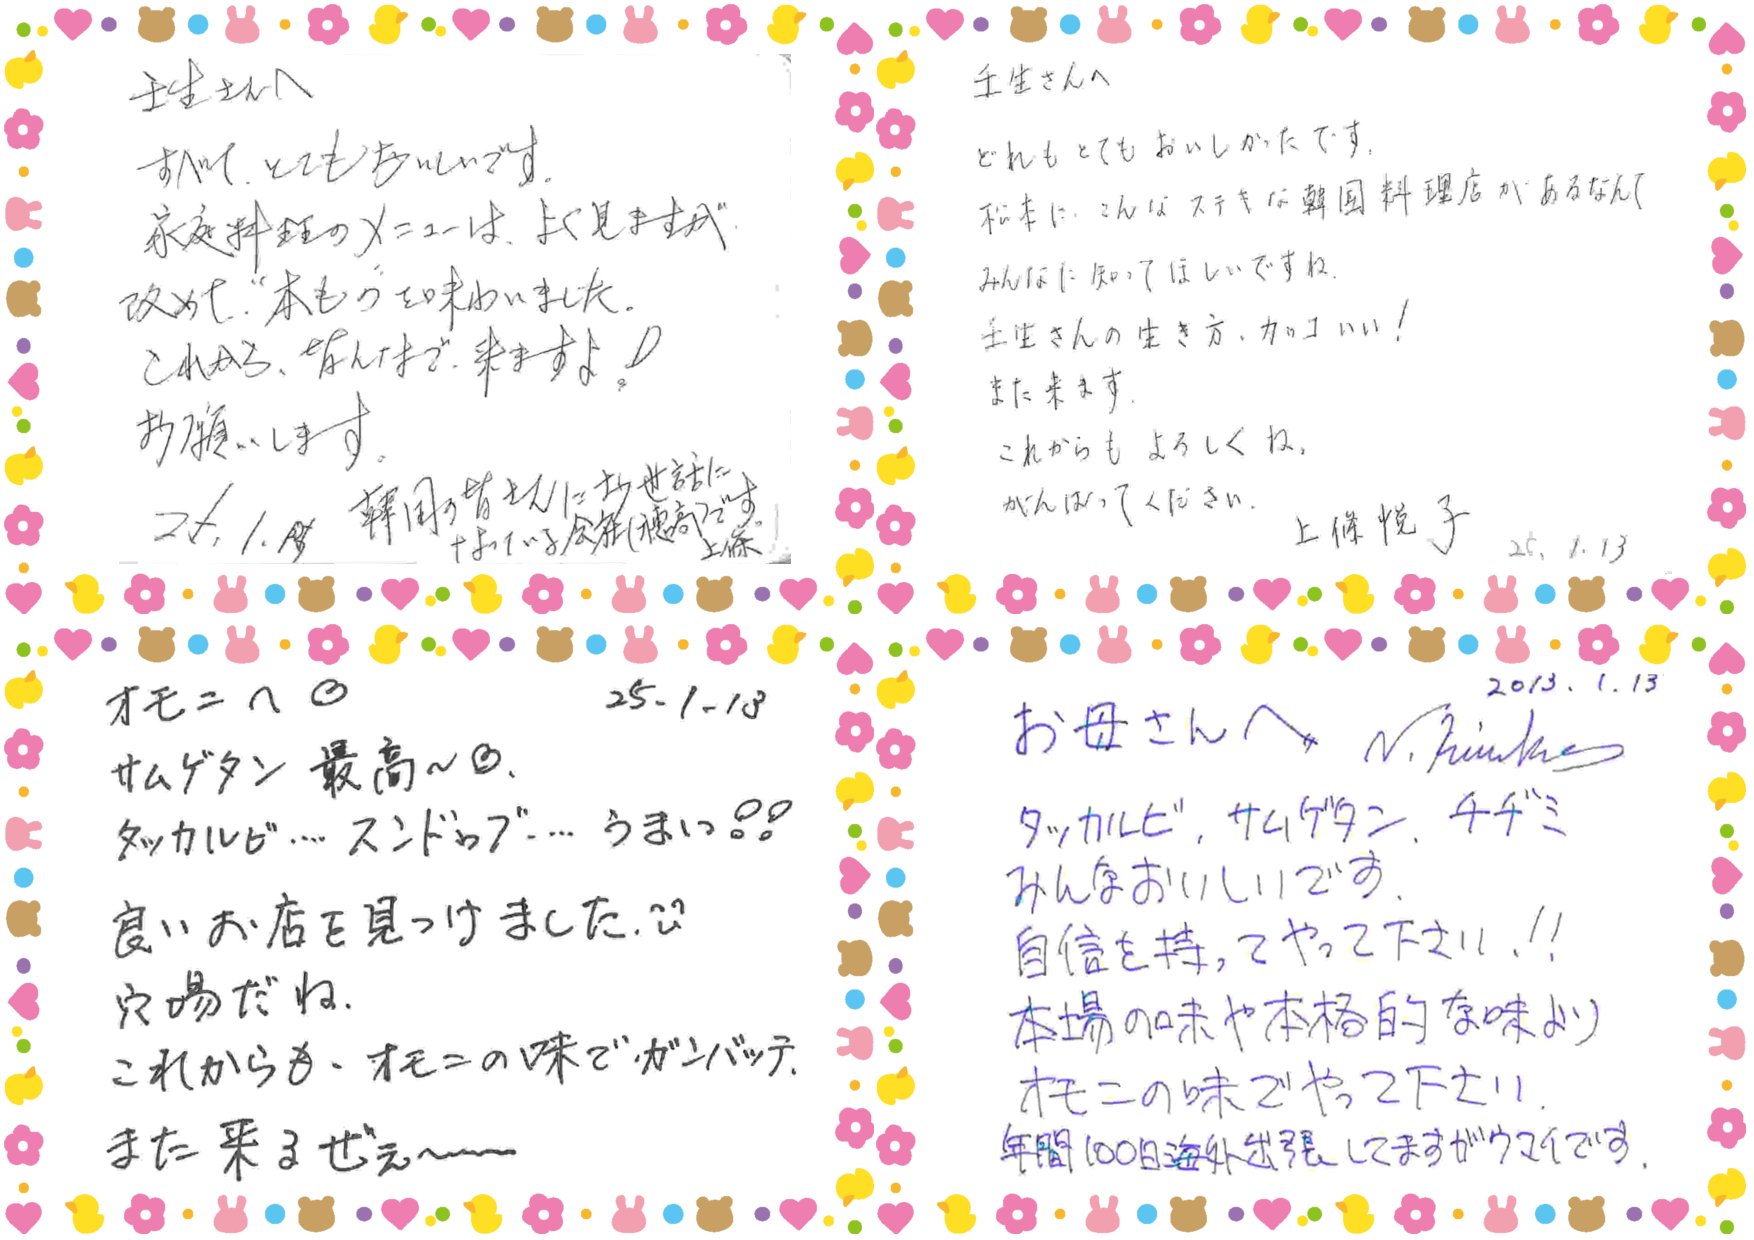 壬生さんへ
すべて、とてもおいしいです。
家庭料理のメニューは、よく見ますが
改めて、"本もの"を味わいました。
これから、皆んなで、来ますよ!
お願いします。
25.1.13
韓国の皆さんにお世話に
なっている会社(穂高)です。
上條
壬生さんへ
どれもとてもおいしかったです。
松本に、こんなステキな韓国料理店があるなんて
みんなに知ってほしいですね。
壬生さんの生き方、カッコいい!
また来ます。
これからもよろしくね。
がんばってください。
上條悦子
25.1.13
オモニへ
25-1-13
サムゲタン 最高~
タッカルビ…. スンドゥブ…. うまいっ!!
良いお店を見つけました.
穴場だね.
これからも、オモニの味でガンバッテ.
また来るぜぇ~~
2013.1.13
お母さんへ
タッカルビ、サムゲタン、チヂミ
みんなおいしいです.
自信を持ってやって下さい.!!
本場の味や本格的な味より
オモニの味でやって下さい.
年間100日海外出張してますがウマイです.